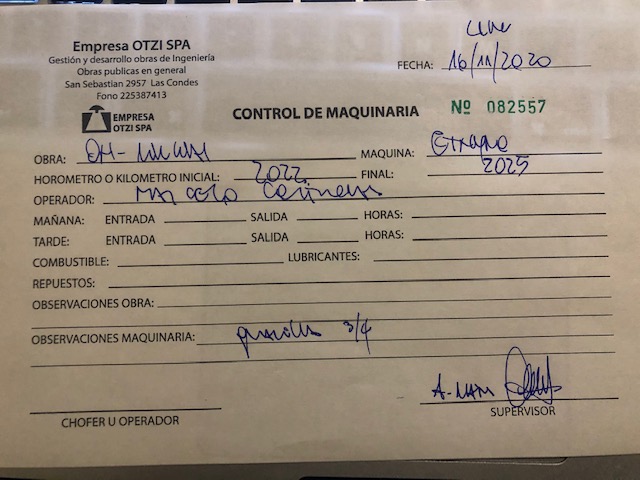 Empresa OTZI SPA
Gestión y desarrollo obras de Ingeniería
Obras publicas en general
San Sebastian 2957 Las Condes
Fono 225387413
FECHA: 16/11/2020
EMPRESA
OTZI SPA
CONTROL DE MAQUINARIA
Nº 082557
OBRA: MAQUINA:
HOROMETRO O KILOMETRO INICIAL: 2022 FINAL: 2025
OPERADOR:
MAÑANA: ENTRADA SALIDA HORAS:
TARDE: ENTRADA SALIDA HORAS:
COMBUSTIBLE: LUBRICANTES:
REPUESTOS:
OBSERVACIONES OBRA:
OBSERVACIONES MAQUINARIA: 3/4
CHOFER U OPERADOR
SUPERVISOR